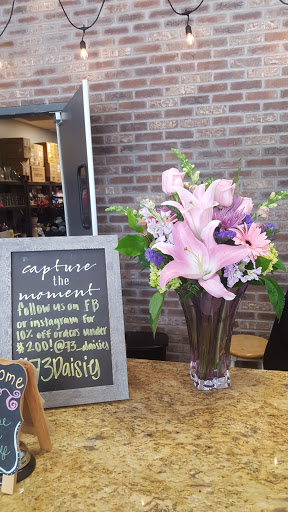 capture
the
moment
follow us on FB
or instagram for
10% off orders under
$200! @73_daisies
73Daisies